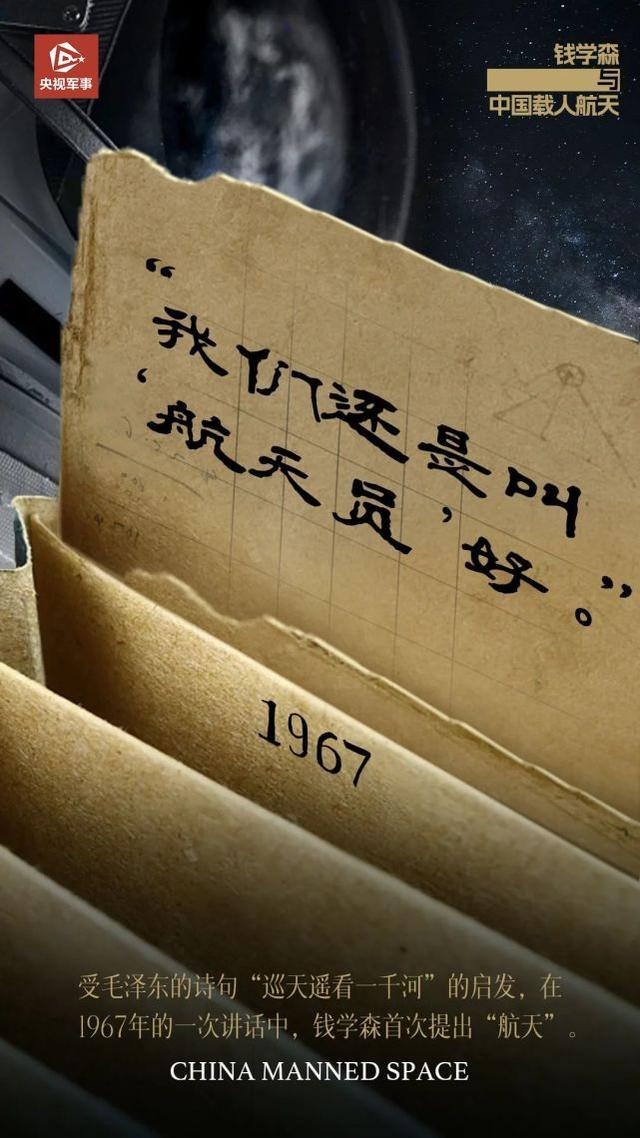 央视军事
钱学森
与
中国载人航天
“我们还是叫
‘航天员’好。”
1967
受毛泽东的诗句“巡天遥看一千河”的启发，在
1967年的一次讲话中，钱学森首次提出“航天”。
CHINA MANNED SPACE